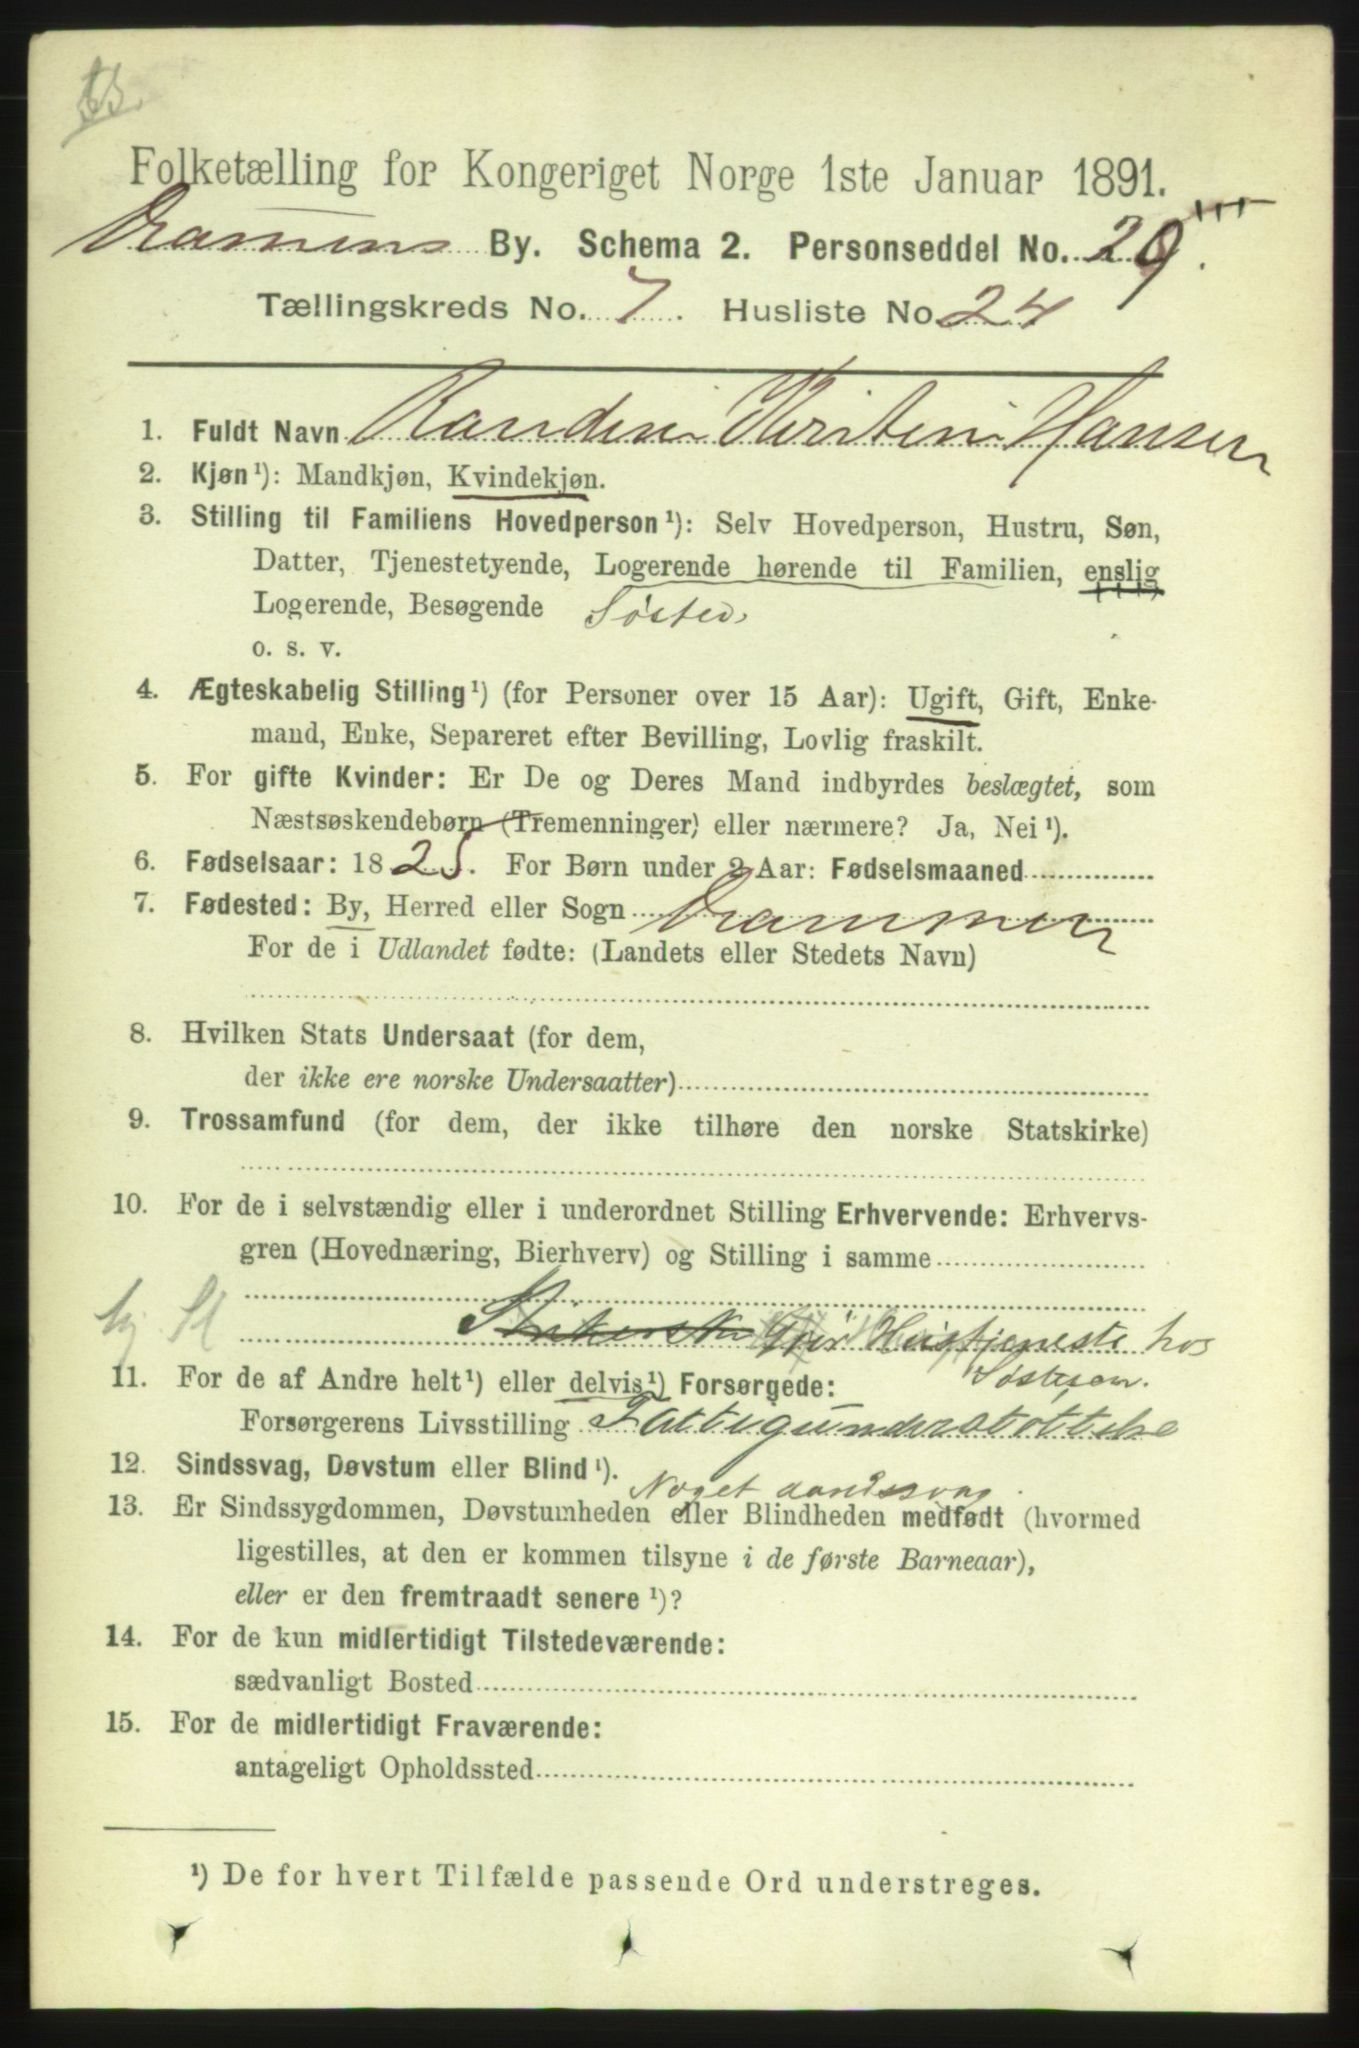 Folketælling for Kongeriget Norge 1ste Januar 1891.
Drammens By. Schema 2. Personseddel No. 29.
Tællingskreds No. 7. Husliste No. 24
1. Fuldt Navn Randine Kristine Hansen
2. Kjøn¹): Mandkjøn, Kvindekjøn.
3. Stilling til Familiens Hovedperson¹): Selv Hovedperson, Hustru, Søn,
Datter, Tjenestetyende, Logerende hørende til Familien, enslig
Logerende, Besøgende Søster
o. s. v.
4. Ægteskabelig Stilling¹) (for Personer over 15 Aar): Ugift, Gift, Enke-
mand, Enke, Separeret efter Bevilling, Lovlig fraskilt.
5. For gifte Kvinder: Er De og Deres Mand indbyrdes beslægtet, som
Næstsøskendebørn (Tremenninger) eller nærmere? Ja, Nei¹).
6. Fødselsaar: 1825. For Børn under 2 Aar: Fødselsmaaned
7. Fødested: By, Herred eller Sogn Drammen
For de i Udlandet fødte: (Landets eller Stedets Navn)
8. Hvilken Stats Undersaat (for dem,
der ikke ere norske Undersaatter)
9. Trossamfund (for dem, der ikke tilhøre den norske Statskirke)
10. For de i selvstændig eller i underordnet Stilling Erhvervende: Erhvervs-
gren (Hovednæring, Bierhverv) og Stilling i samme
Gjør Hustjeneste hos
11. For de af Andre helt¹) eller delvis¹) Forsørgede: Søsteren.
Forsørgerens Livsstilling Fattigunderstøttelse
12. Sindssvag, Døvstum eller Blind¹). Noget aandssvag.
13. Er Sindssygdommen, Døvstumheden eller Blindheden medfødt (hvormed
ligestilles, at den er kommen tilsyne i de første Barneaar),
eller er den fremtraadt senere¹)?
14. For de kun midlertidigt Tilstedeværende:
sædvanligt Bosted
15. For de midlertidigt Fraværende:
antageligt Opholdssted
¹) De for hvert Tilfælde passende Ord understreges.